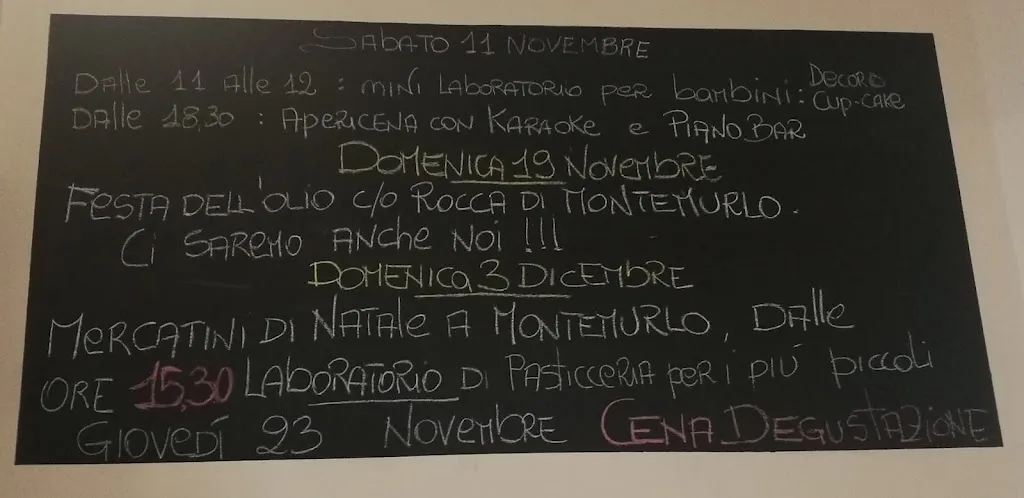 SABATO 11 NOVEMBRE
DALLE 11 ALLE 12 : MINI LABORATORIO PER BAMBINI: DECORO CUP-CAKE
DALLE 18,30 : APERICENA CON KARAOKE E PIANO BAR
DOMENICA 19 NOVEMBRE
FESTA DELL'OLIO C/O ROCCA DI MONTEMURLO.
CI SAREMO ANCHE NOI !!!
DOMENICA 3 DICEMBRE
MERCATINI DI NATALE A MONTEMURLO, DALLE
ORE 15,30 LABORATORIO DI PASTICCERIA PER I PIÚ PICCOLI
GIOVEDÍ 23 NOVEMBRE CENA DEGUSTAZIONE